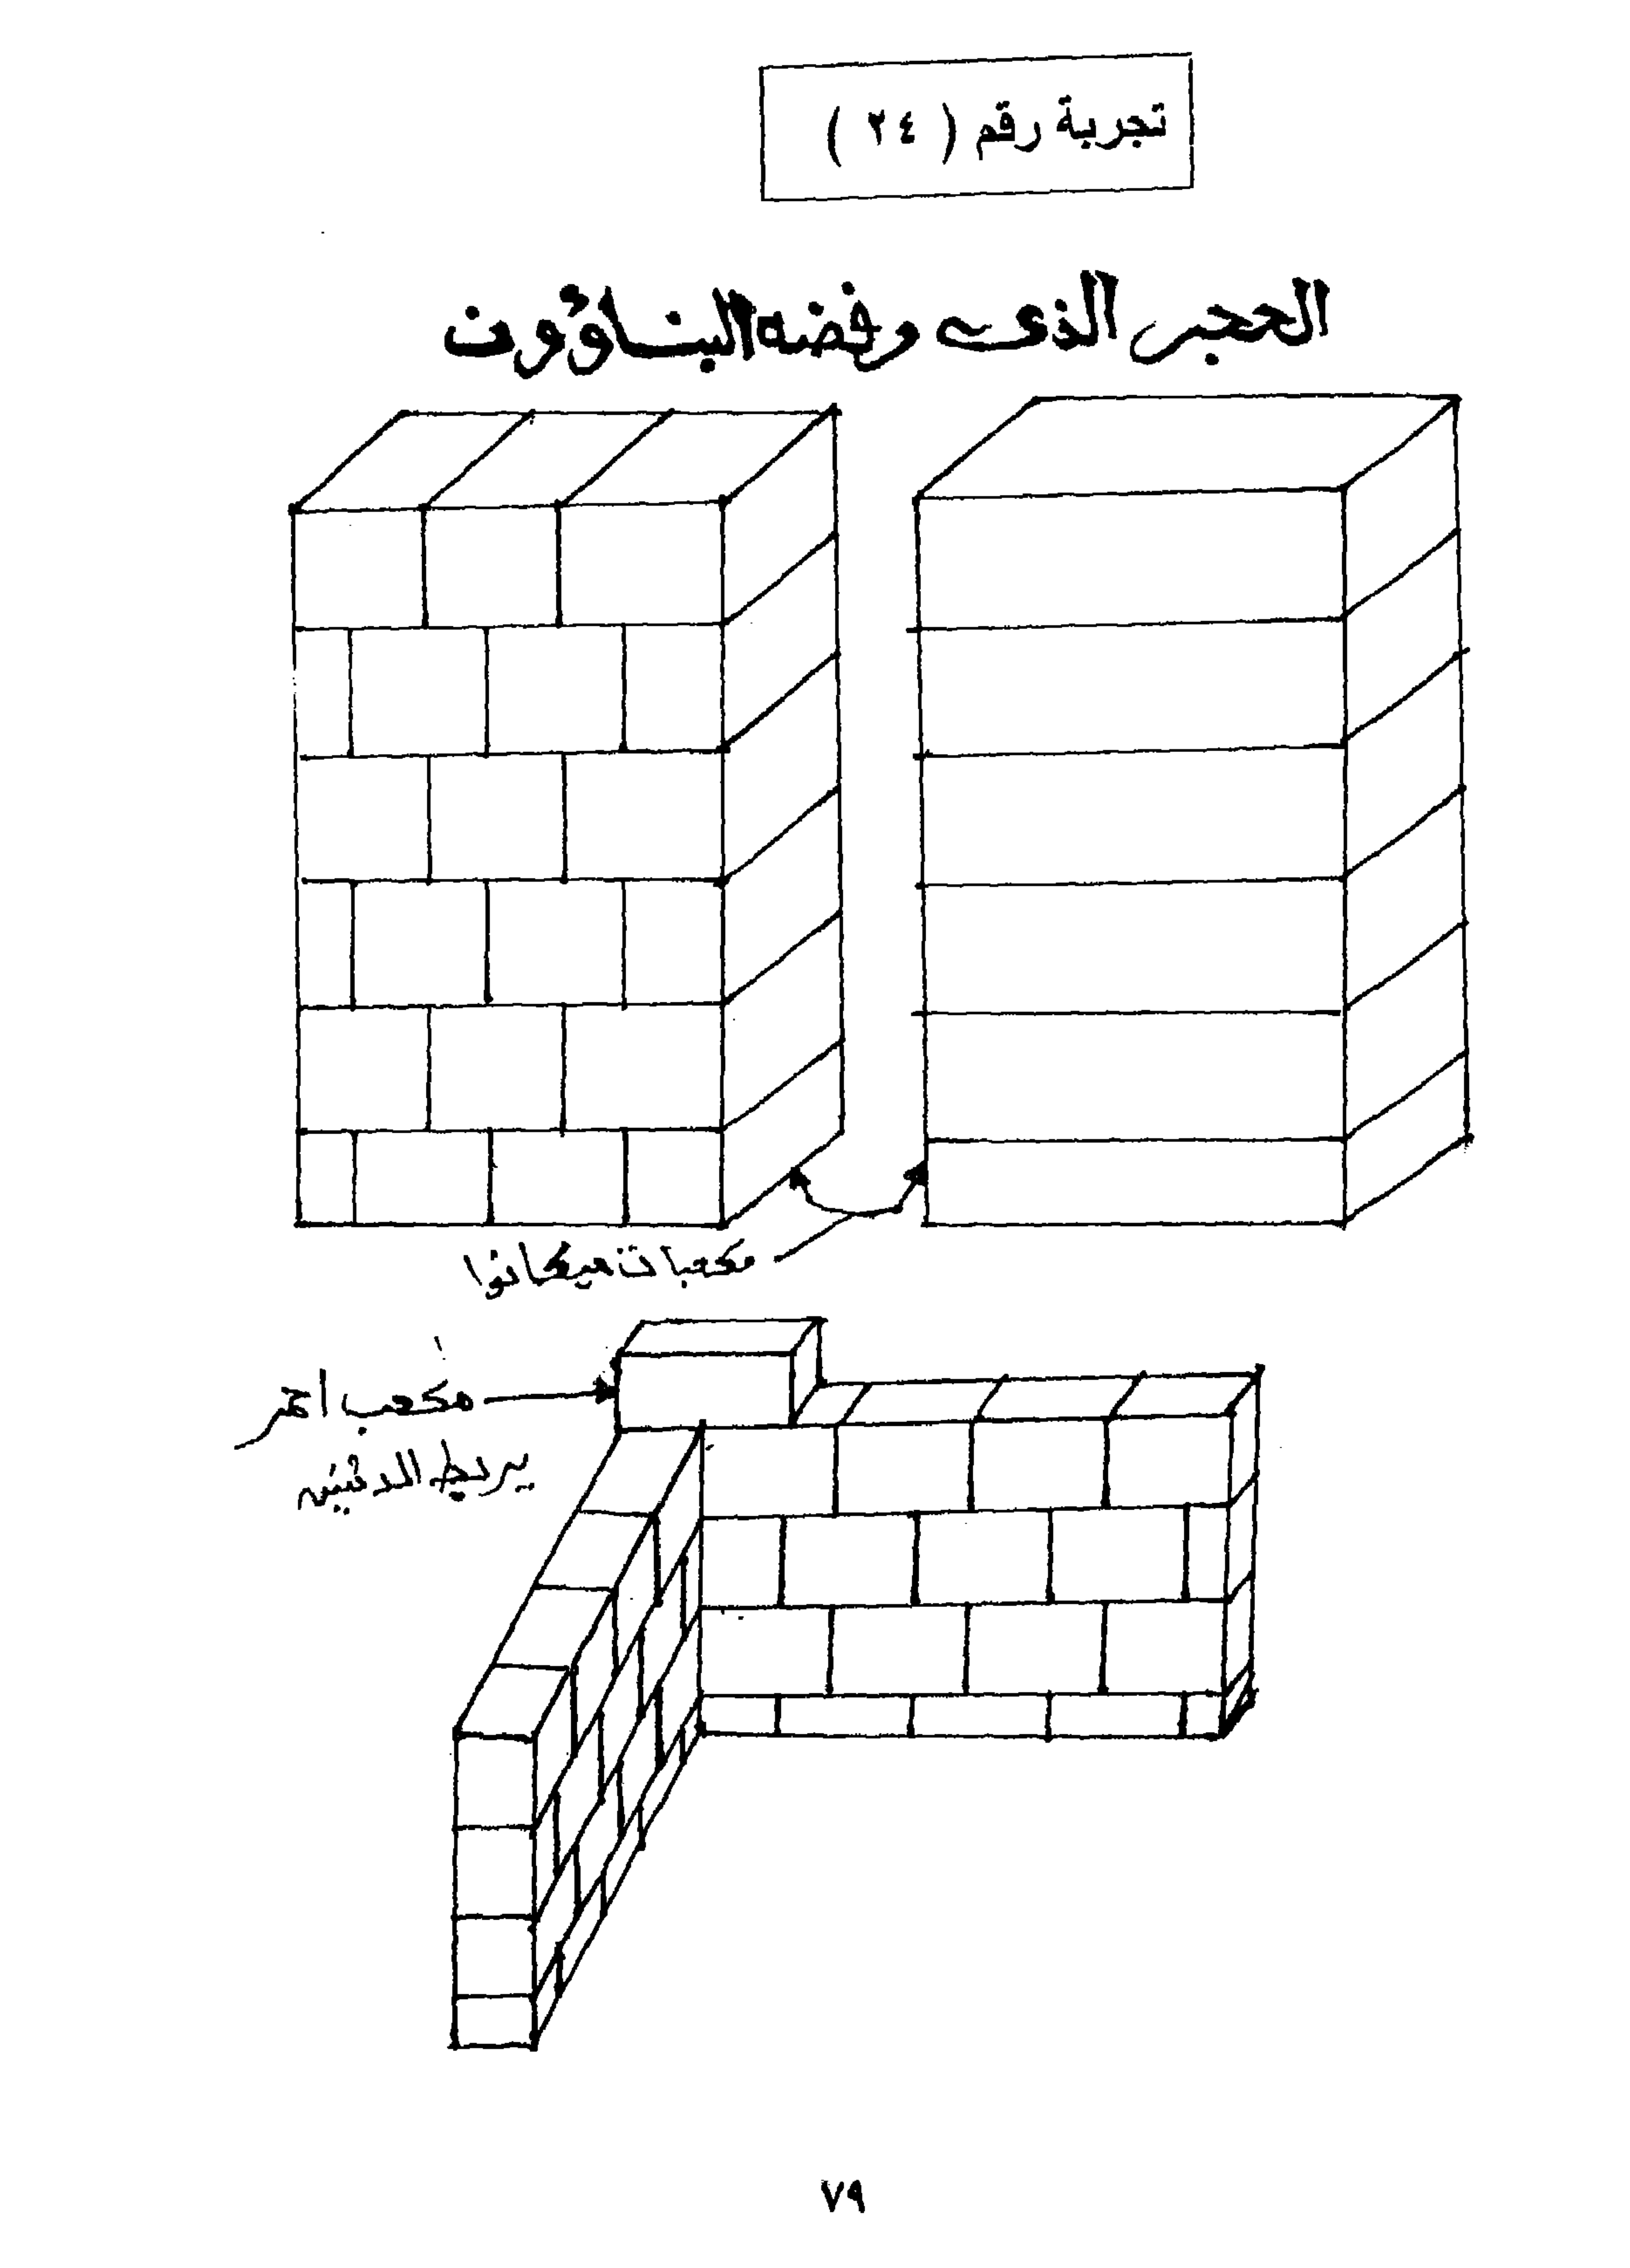 تجربة رقم ( ٢٤ )
الحجر الذى رفضه البناؤون
مكعبات ميكانوا
مكعب احمر
يربط الاثنين
٧٩